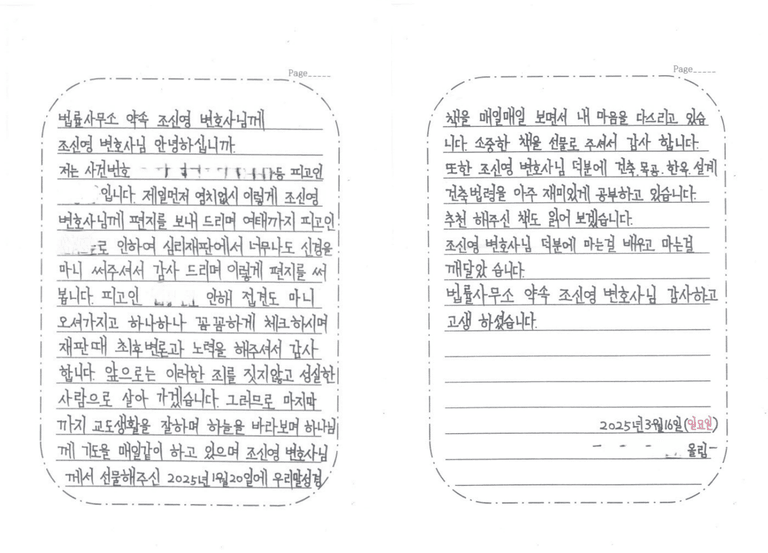 Page
법률사무소 약속 조신영 변호사님께
조신영 변호사님 안녕하십니까.
저는 사건번호 등 피고인
입니다. 제일먼저 염치없시 이렇게 조신영
변호사님께 편지를 보내 드리며 여태까지 피고인
로 인하여 심리재판에서 너무나도 신경을
마니 써주셔서 감사 드리며 이렇게 편지를 써
봅니다. 피고인 안해 접견도 마니
오셔가지고 하나하나 꼼꼼하게 체크하시며
재판때 최후변론과 노력을 해주셔서 감사
합니다. 앞으로는 이러한 죄를 짓지않고 성실한
사람으로 살아 가겠습니다. 그러므로 마지막
까지 교도생활을 잘하며 하늘을 바라보며 하나님
께 기도을 매일같이 하고 있으며 조신영 변호사님
께서 선물해주신 2025년 1월20일에 우리말성경
Page
책을 매일매일 보면서 내 마음을 다스리고 있습
니다. 소중한 책을 선물로 주셔서 감사 합니다.
또한 조신영 변호사님 덕분에 건축.목공.한옥.설계
건축법령을 아주 재미있게 공부하고 있습니다.
추천 해주신 책도 읽어 보겠습니다.
조신영 변호사님 덕분에 마는걸 배우고 마는걸
깨달았 습니다.
법률사무소 약속 조신영 변호사님 감사하고
고생 하셨습니다.
2025년 3월 16일 (일요일)
올림-